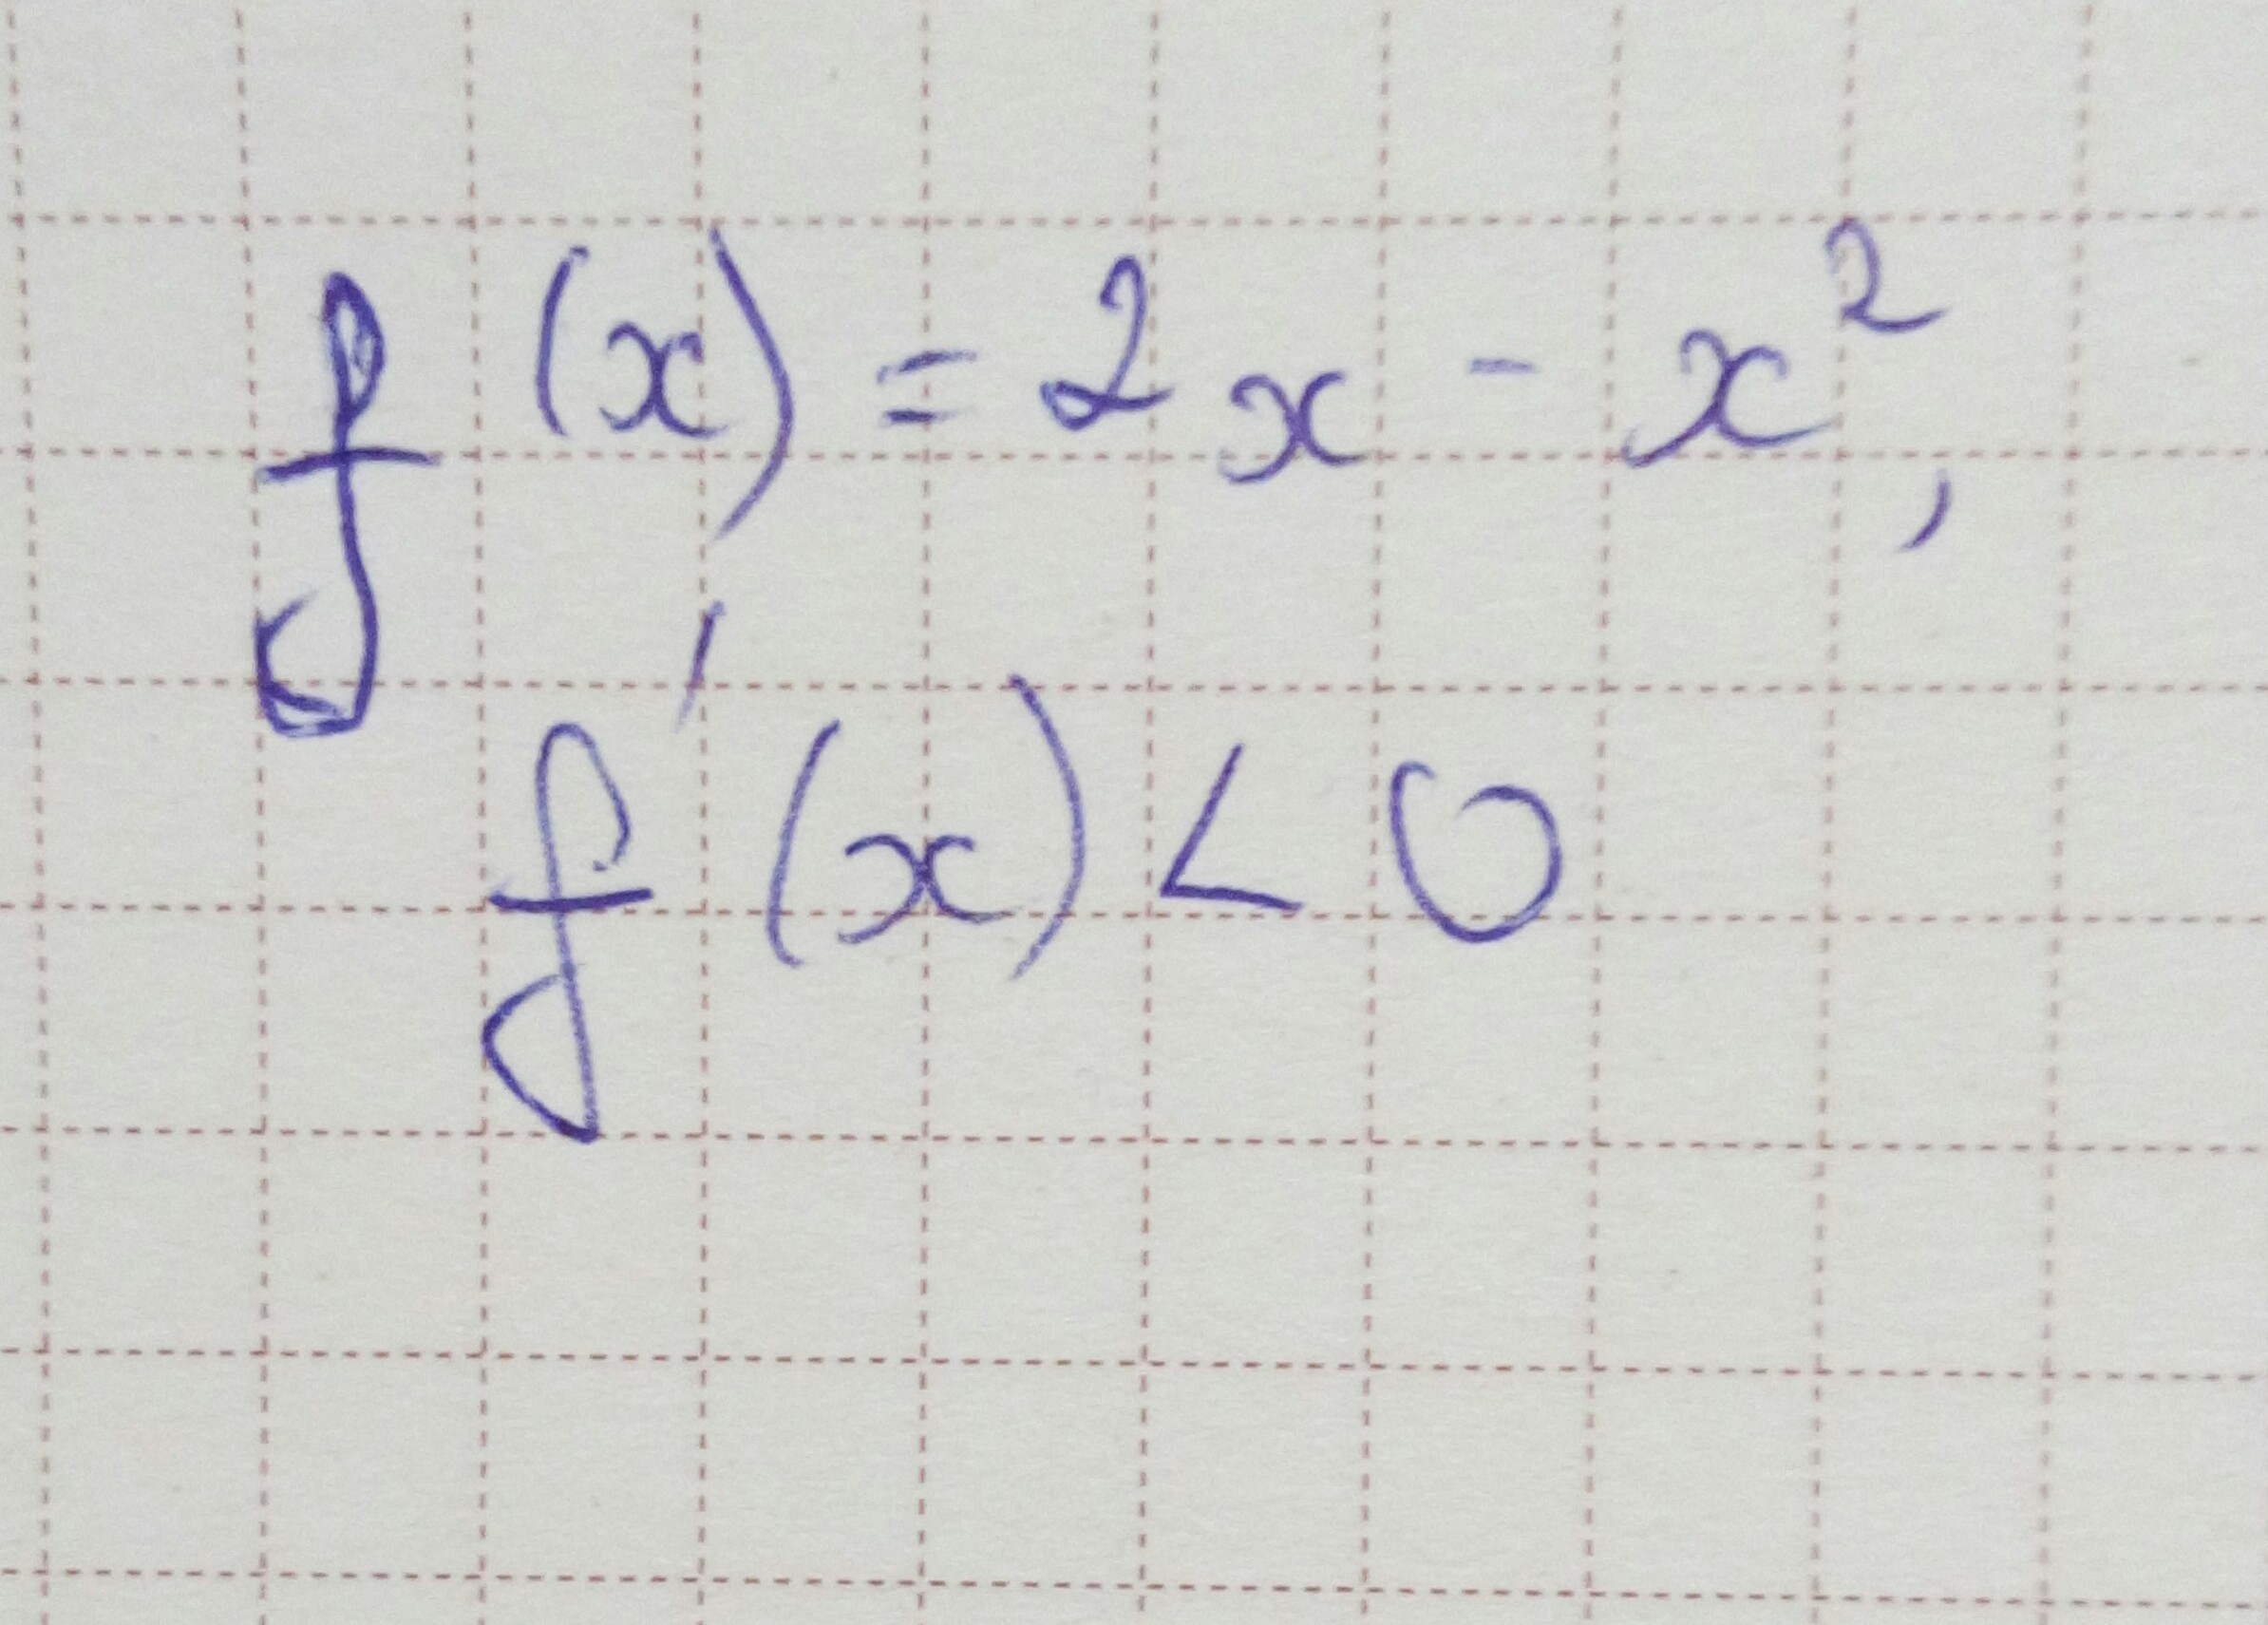 f(x) = 2x - x²,
f'(x) < 0